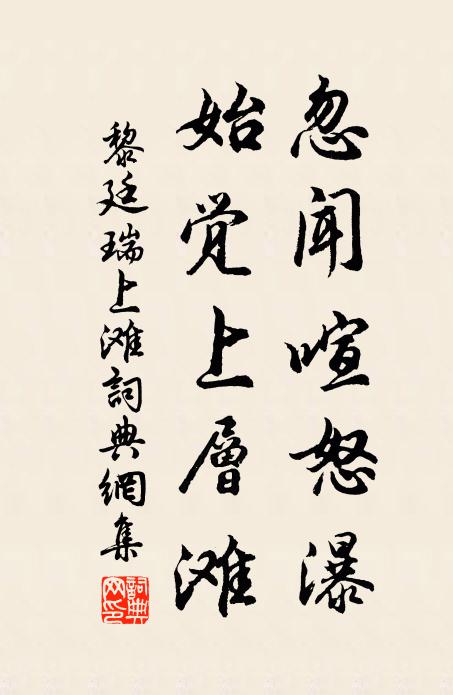 忽闻喧怒瀑
始觉上層滩
黎廷瑞上滩詞典網集
詞典網印